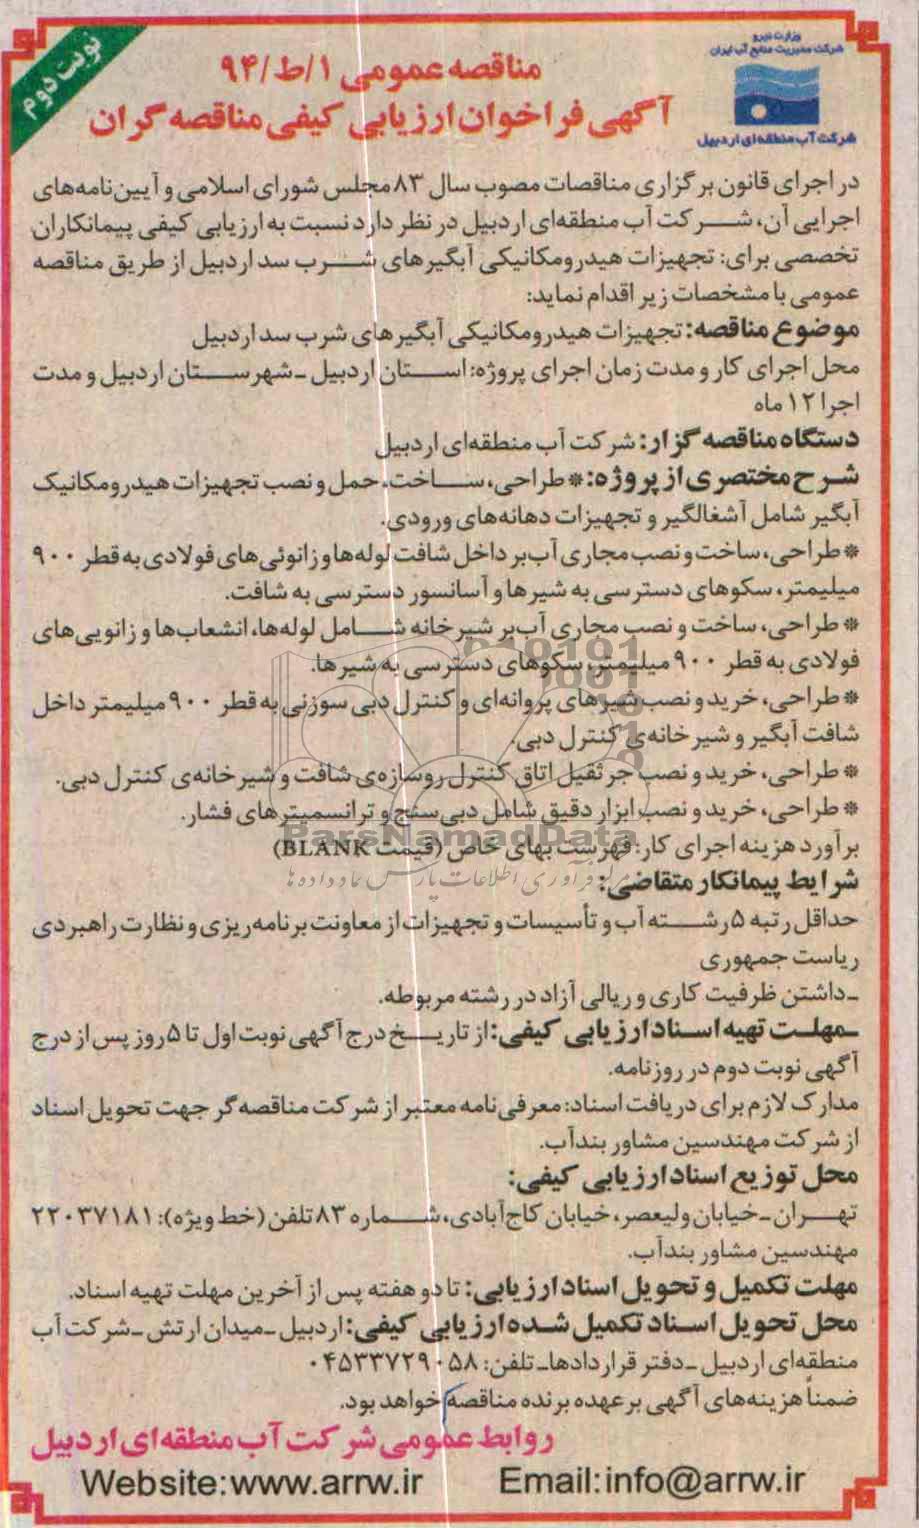 نوبت دوم
وزارت نیرو
شرکت مدیریت منابع آب ایران
شرکت آب منطقه‌ای اردبیل
مناقصه عمومی ۱/ط/۹۴
آگهی فراخوان ارزیابی کیفی مناقصه گران
در اجرای قانون برگزاری مناقصات مصوب سال ۸۳ مجلس شورای اسلامی و آیین‌نامه‌های
اجرایی آن، شرکت آب منطقه‌ای اردبیل در نظر دارد نسبت به ارزیابی کیفی پیمانکاران
تخصصی برای: تجهیزات هیدرومکانیکی آبگیرهای شرب سد اردبیل از طریق مناقصه
عمومی با مشخصات زیر اقدام نماید:
موضوع مناقصه: تجهیزات هیدرومکانیکی آبگیرهای شرب سد اردبیل
محل اجرای کار و مدت زمان اجرای پروژه: استان اردبیل ـ شهرستان اردبیل و مدت
اجرا ۱۲ ماه
دستگاه مناقصه گزار: شرکت آب منطقه‌ای اردبیل
شرح مختصری از پروژه: * طراحی، ساخت، حمل و نصب تجهیزات هیدرومکانیک
آبگیر شامل آشغالگیر و تجهیزات دهانه‌های ورودی.
* طراحی، ساخت و نصب مجاری آب‌بر داخل شافت لوله‌ها و زانوئی‌های فولادی به قطر ۹۰۰
میلیمتر، سکوهای دسترسی به شیرها و آسانسور دسترسی به شافت.
* طراحی، ساخت و نصب مجاری آب‌بر شیرخانه شامل لوله‌ها، انشعاب‌ها و زانویی‌های
فولادی به قطر ۹۰۰ میلیمتر، سکوهای دسترسی به شیرها.
* طراحی، خرید و نصب شیرهای پروانه‌ای و کنترل دبی سوزنی به قطر ۹۰۰ میلیمتر داخل
شافت آبگیر و شیرخانه‌ی کنترل دبی.
* طراحی، خرید و نصب جرثقیل اتاق کنترل روسازه‌ی شافت و شیرخانه‌ی کنترل دبی.
* طراحی، خرید و نصب ابزار دقیق شامل دبی سنج و ترانسمیترهای فشار.
ParsNamadData
برآورد هزینه اجرای کار: فهرست بهای خاص (قیمت BLANK)
مرکز فرآوری اطلاعات پارس نماد داده ها
شرایط پیمانکار متقاضی:
حداقل رتبه ۵ رشته آب و تأسیسات و تجهیزات از معاونت برنامه‌ریزی و نظارت راهبردی
ریاست جمهوری
ـ داشتن ظرفیت کاری و ریالی آزاد در رشته مربوطه.
ـ مهلت تهیه اسناد ارزیابی کیفی: از تاریخ درج آگهی نوبت اول تا ۵ روز پس از درج
آگهی نوبت دوم در روزنامه.
مدارک لازم برای دریافت اسناد: معرفی‌نامه معتبر از شرکت مناقصه‌گر جهت تحویل اسناد
از شرکت مهندسین مشاور بندآب.
محل توزیع اسناد ارزیابی کیفی:
تهران ـ خیابان ولیعصر، خیابان کاج‌آبادی، شماره ۸۳ تلفن (خط ویژه): ۲۲۰۳۷۱۸۱
مهندسین مشاور بندآب.
مهلت تکمیل و تحویل اسناد ارزیابی: تا دو هفته پس از آخرین مهلت تهیه اسناد.
محل تحویل اسناد تکمیل شده ارزیابی کیفی: اردبیل ـ میدان ارتش ـ شرکت آب
منطقه‌ای اردبیل ـ دفتر قراردادها ـ تلفن: ۰۴۵۳۳۷۲۹۰۵۸
ضمناً هزینه‌های آگهی بر عهده برنده مناقصه خواهد بود.
روابط عمومی شرکت آب منطقه‌ای اردبیل
Website:www.arrw.ir Email:info@arrw.ir